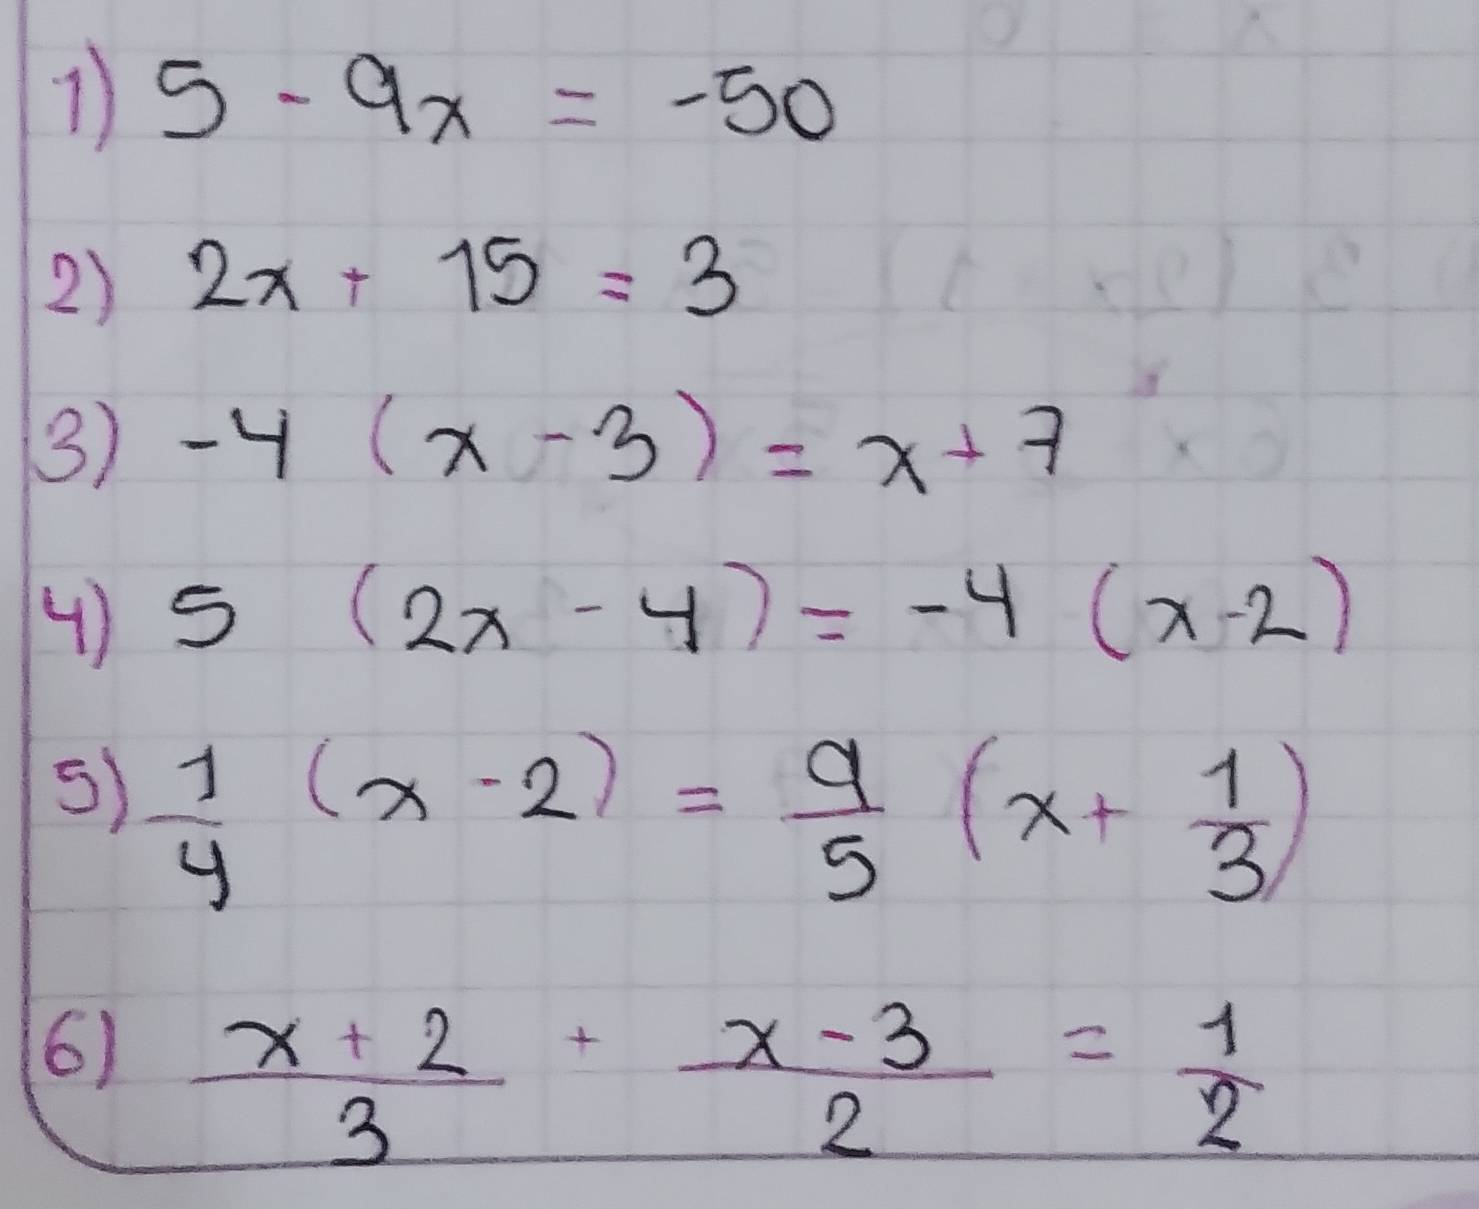 1) 5 - 9x = -50
2) 2x + 15 = 3
3) -4 (x - 3) = x + 7
4) 5 (2x - 4) = -4 (x - 2)
5) 1/4 (x - 2) = 9/5 (x + 1/3)
6) x + 2/3 + x - 3/2 = 1/2